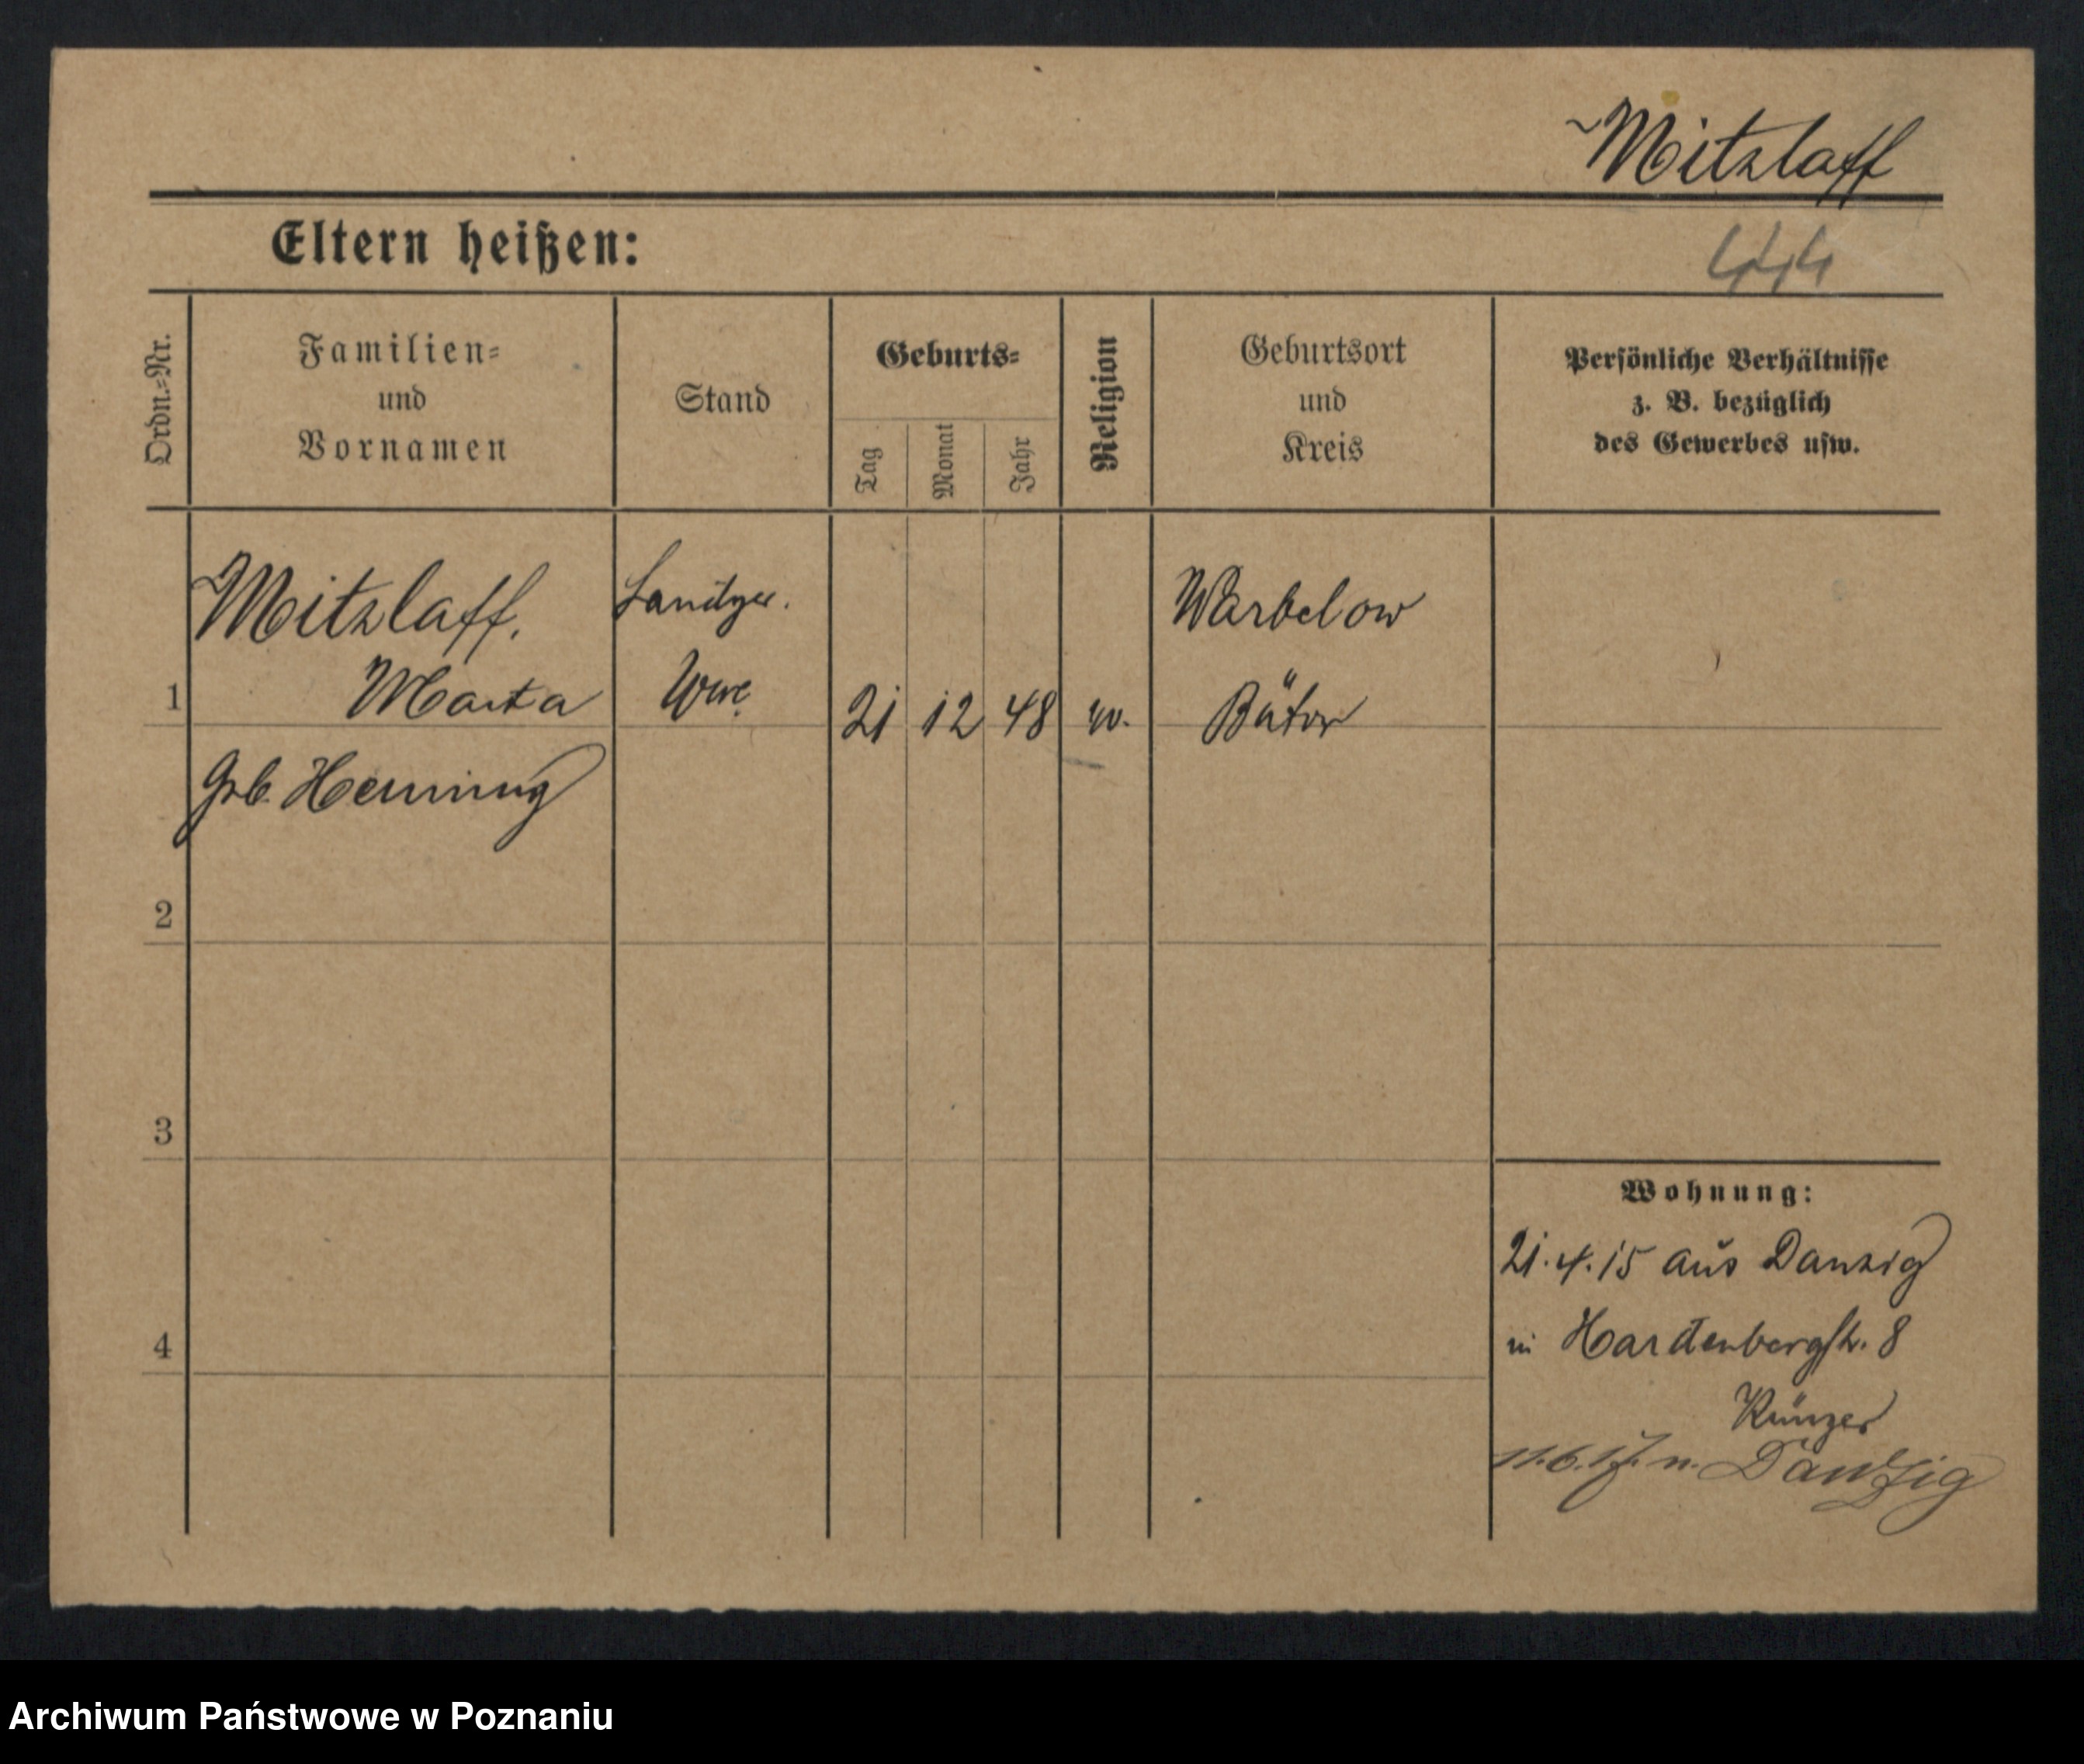 Mitzlaff
Eltern heißen:
444
Ordn.=Nr.
Familien=
und
Vornamen
Stand
Geburts=
Tag
Monat
Jahr
Religion
Geburtsort
und
Kreis
Persönliche Verhältnisse
z. B. bezüglich
des Gewerbes usw.
Mitzlaff,
Warbelow
1 Marta Wwe. 21 12 48 Bütow
geb. Henning
2
3
4
Wohnung:
21.4.15 aus Danzig
in Hardenbergstr. 8
Künzer
11.6.17. n. Danzig
Archiwum Państwowe w Poznaniu